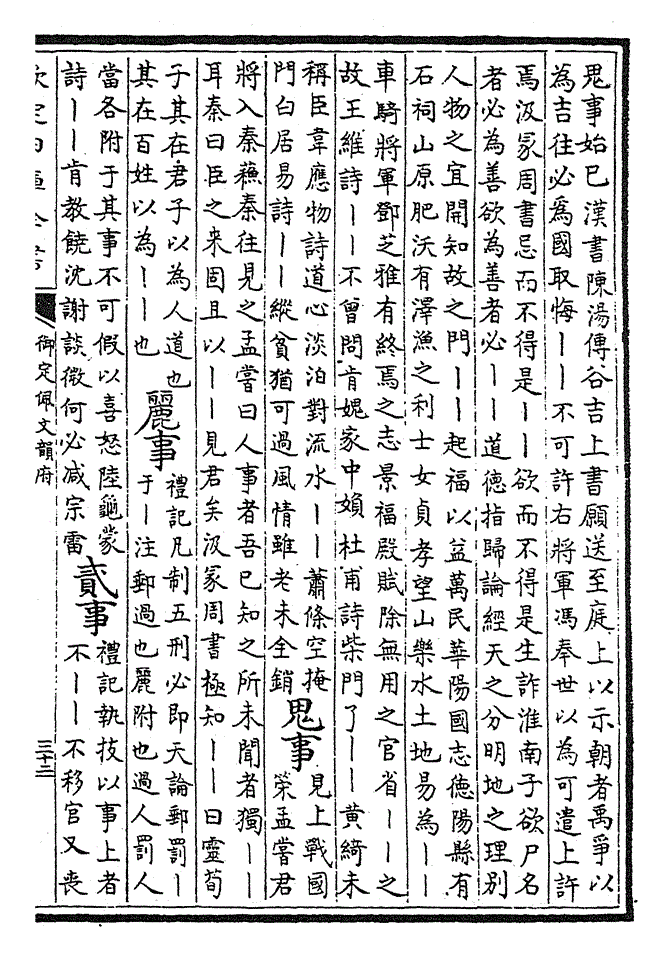 鬼事始已漢書陳湯傳谷吉上書願送至庭上以示朝者禹爭以
為吉往必為國取悔丨丨不可許右將軍馮奉世以為可遣上許
焉汲冢周書忌而不得是丨丨欲而不得是生詐淮南子欲尸名
者必為善欲為善者必丨丨道德指歸論經天之分明地之理別
人物之宜開知故之門丨丨起福以益萬民華陽國志德陽縣有
石祠山原肥沃有澤漁之利士女貞孝望山樂水土地易為丨丨
車騎將軍鄧芝雅有終焉之志景福殿賦除無用之官省丨丨之
故王維詩丨丨不曾問肯媿家中嬾杜甫詩柴門了丨丨黃綺未
稱臣韋應物詩道心淡泊對流水丨丨蕭條空掩
門白居易詩丨丨縱貧猶可過風情雖老未全銷
鬼事
見上戰國
策孟嘗君
將入秦蘓秦往見之孟嘗曰人事者吾已知之所未聞者獨丨丨
耳秦曰臣之來固且以丨丨見君矣汲冢周書極知丨丨曰靈荀
子其在君子以為人道也
其在百姓以為丨丨也
麗事
禮記凡制五刑必即天論郵罰丨
于丨注郵過也麗附也過人罰人
當各附于其事不可假以喜怒陸龜蒙
詩丨丨肯教饒沈謝談微何必减宗雷
貳事
禮記執技以事上者
不丨丨不移官又喪
欽定四庫全書
御定佩文韻府
三十二